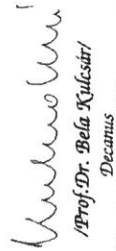 /Prof.Dr. Bela Kulcsár/
Decanus